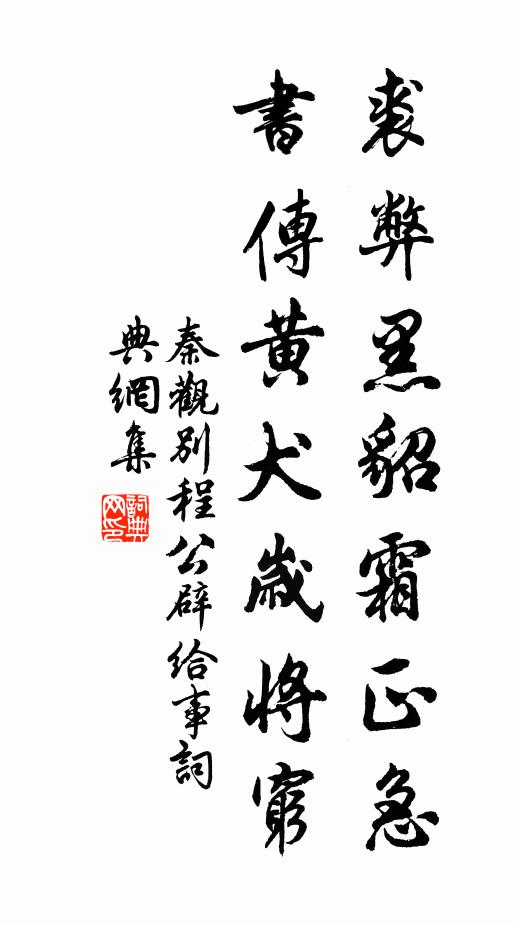 裘弊黑貂霜正急
書傳黃犬歲將窮
秦觀別程公辟給事詞
典網集
詞典網印